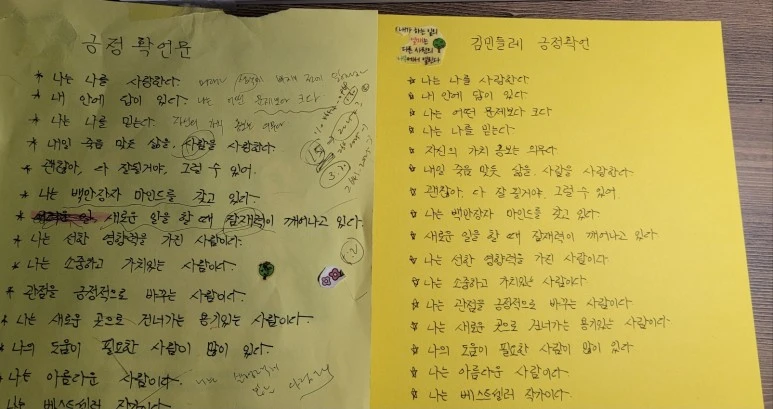 긍정 확언문
* 나는 나를 사랑한다.
* 내 안에 답이 있다. 나는 어떤 문제보다 크다
* 나는 나를 믿는다. 자신의 가치 홍보는 의무다
* 내일 죽을 맞듯 삶을, 사람을 사랑한다.
* 괜찮아, 다 잘될거야, 그럴 수 있어.
* 나는 백만장자 마인드를 갖고 있다.
* 새로운 일을 할 때 잠재력이 깨어나고 있다.
* 나는 선한 영향력을 가진 사람이다.
* 나는 소중하고 가치있는 사람이다.
* 관점을 긍정적으로 바꾸는 사람이다.
* 나는 새로운 곳으로 건너가는 용기있는 사람이다.
* 나의 도움이 필요한 사람이 많이 있다.
* 나는 아름다운 사람이다.
나는 베스트셀러 작가이다.
내가 하는 일의
열매는
다른 사람의
나무에서 열린다
김민들레 긍정확언
☆ 나는 나를 사랑한다
☆ 내 안에 답이 있다.
☆ 나는 어떤 문제보다 크다
☆ 나는 나를 믿는다.
☆ 자신의 가치 홍보는 의무다
☆ 내일 죽을 맞듯 삶을, 사람을 사랑한다.
☆ 괜찮아, 다 잘 될거야, 그럴 수 있어.
☆ 나는 백만장자 마인드를 갖고 있다.
☆ 새로운 일을 할 때 잠재력이 깨어나고 있다
☆ 나는 선한 영향력을 가진 사람이다
☆ 나는 소중하고 가치있는 사람이다
☆ 나는 관점을 긍정적으로 바꾸는 사람이다.
☆ 나는 새로운 곳으로 건너가는 용기있는 사람이다.
☆ 나의 도움이 필요한 사람이 많이 있다
☆ 나는 아름다운 사람이다.
☆ 나는 베스트셀러 작가이다.